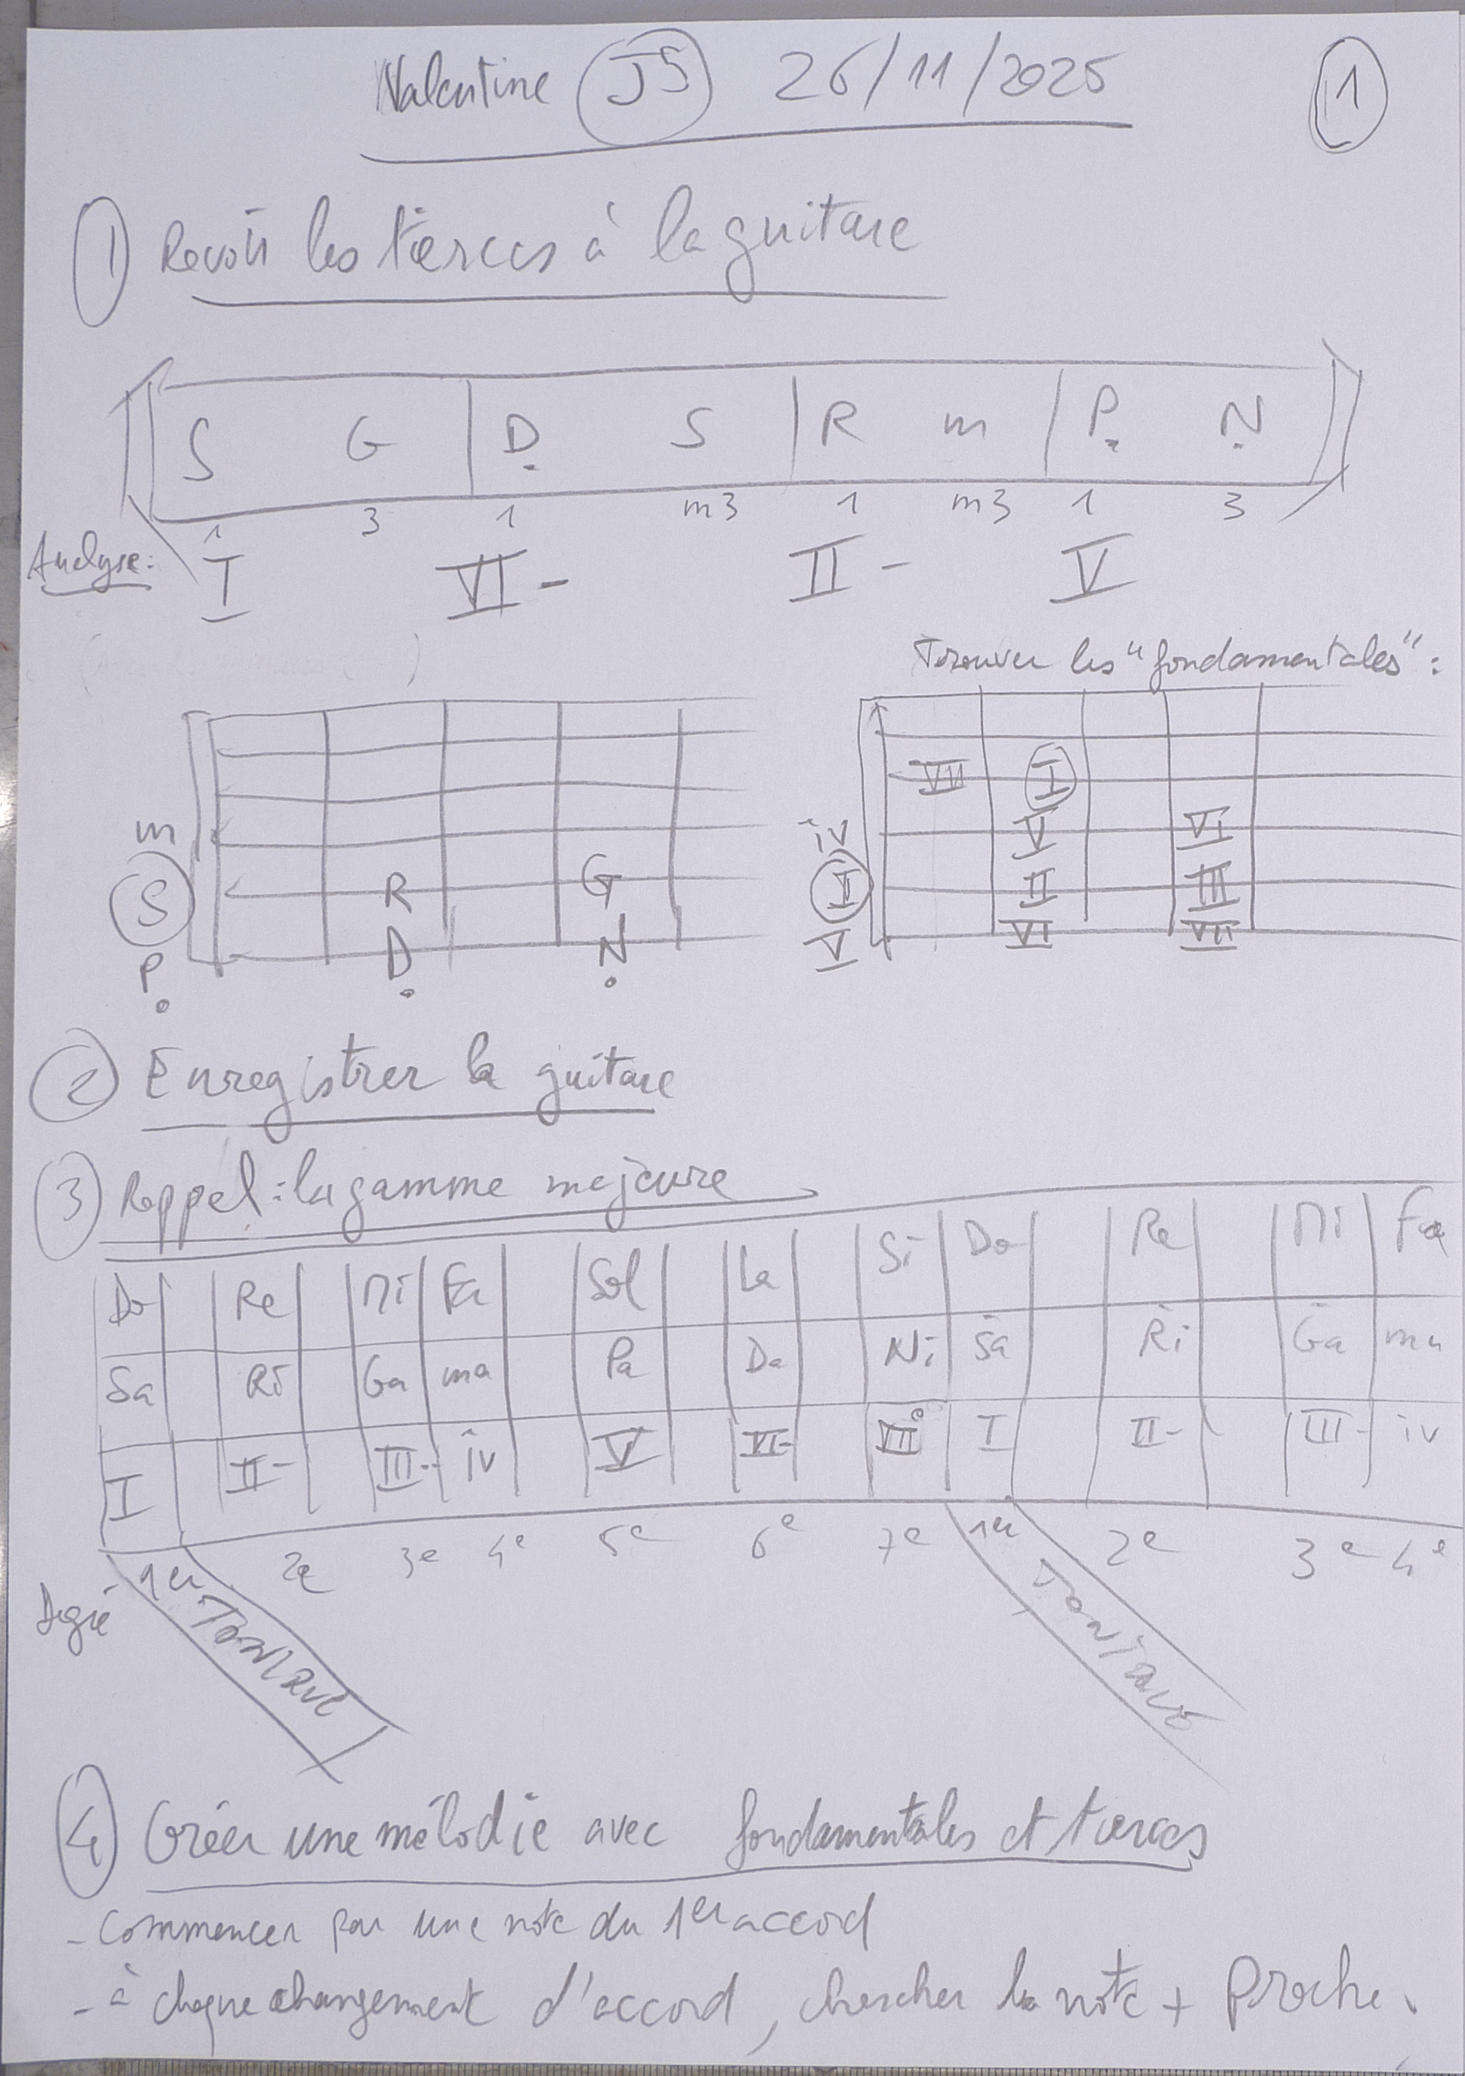 Valentine JS 26/11/2025 1
1 Revoir les tierces à la guitare
S G | Ḍ S | R m | P̣ Ṇ
1 3 1 m3 1 m3 1 3
Analyse: I VI- II- V
Trouver les "fondamentales":
VII I
m iv V VI
S R G I II III
P̣ Ḍ Ṇ V VI VII
2 Enregistrer la guitare
3 Rappel: la gamme majeure
Do Re Mi Fa Sol La Si Do Re Mi Fa
Sa Ri Ga ma Pa Da Ni Sa Ri Ga ma
I II- III- iv V VI- VII° I II- III- iv
Degré 1er 2e 3e 4e 5e 6e 7e 1er 2e 3e 4e
TONIQUE TONIQUE
4 Créer une mélodie avec fondamentales et tierces
- Commencer par une note du 1er accord
- à chaque changement d'accord, chercher la note + proche.